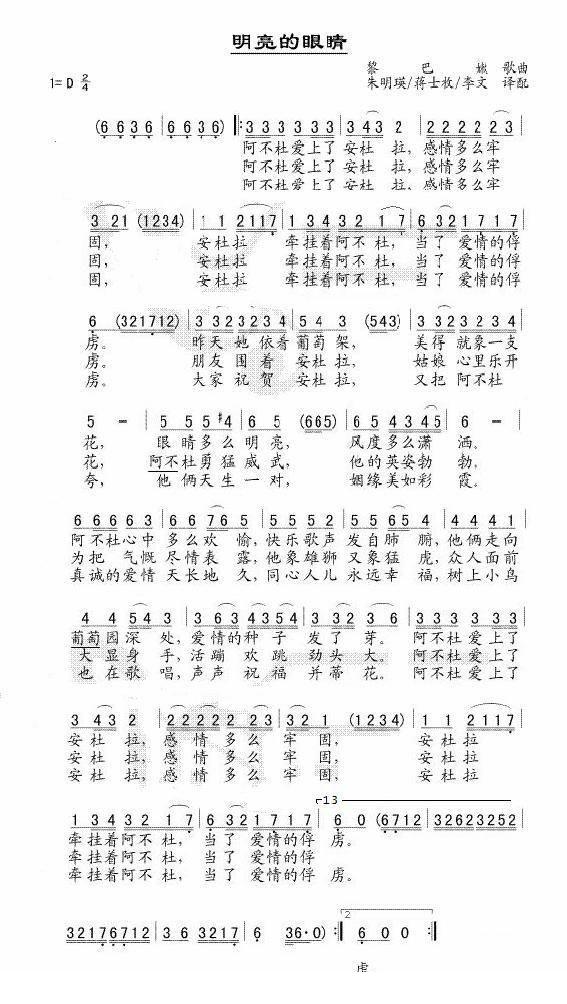 明亮的眼睛
黎巴嫩 歌曲
1= D 2/4 朱明瑛/蒋士枚/李文 译配
(6 6 3 6 | 6 6 3 6) |: 3 3 3 3 3 3 | 3 4 3 2 | 2 2 2 2 2 3 |
阿不杜爱上了 安杜 拉, 感情多么牢
阿不杜爱上了 安杜 拉, 感情多么牢
阿不杜爱上了 安杜 拉, 感情多么牢
3 21 (1234) | 1 1 2117 | 1 34 32 1 7 | 6 32 1 7 1 7 |
固, 安杜拉 牵挂着阿不 杜, 当了 爱情的俘
固, 安杜拉 牵挂着阿不 杜, 当了 爱情的俘
固, 安杜拉 牵挂着阿不 杜, 当了 爱情的俘
6 (321712) | 3 3 2 3 2 3 4 | 5 4 3 (543) | 3 3 2 3 2 3 4 |
虏。 昨天 她 依着 葡萄 架, 美得 就象 一支
虏。 朋友 围着 安杜拉, 姑娘 心里乐开
虏。 大家 祝贺 安杜拉, 又把 阿不杜
5 - | 5 5 5 #4 | 6 5 (665) | 6 5 4 3 4 5 | 6 - |
花, 眼睛多么 明亮, 风度多么 潇 洒。
花, 阿不杜勇猛 威武, 他的英姿勃 勃,
夸, 他俩天生 一对, 姻缘美如彩 霞。
6 6 6 6 3 | 6 6 76 5 | 5 5 5 5 | 5 5 65 4 | 4 4 4 4 5 |
阿不杜心中 多么欢 愉, 快乐歌声 发自肺 腑, 他俩走向
为把 气慨 尽情表 露, 他象雄狮 又象猛 虎, 众人面前
真诚的爱情 天长地 久, 同心人儿 永远幸 福, 树上小鸟
4 4 54 3 | 3 3 6 4 3 5 4 | 3 2 1 2 3 | 3 3 3 3 3 3 |
葡萄园深 处, 爱情的种 子 发了芽。 阿不杜爱上了
大显身 手, 活蹦欢跳 劲头大。 阿不杜爱上了
也在歌 唱, 声声祝福 并蒂花。 阿不杜爱上了
3 43 2 | 2 2 2 2 2 23 | 32 1 (1234) | 1 1 2117 |
安杜 拉, 感情多么 牢固, 安杜拉
安杜 拉, 感情多么 牢固, 安杜拉
安杜 拉, 感情多么 牢固, 安杜拉
13
1 34 32 17 | 6 32 1 7 1 7 | 6 0 (6712 | 32623252 |
牵挂着阿不 杜, 当了 爱情的俘 虏。
牵挂着阿不 杜, 当了 爱情的俘
牵挂着阿不 杜, 当了 爱情的俘 虏。
2
3217 6712 | 3 6 3217 | 6 36·0) :| 6 0 0 :|
虏